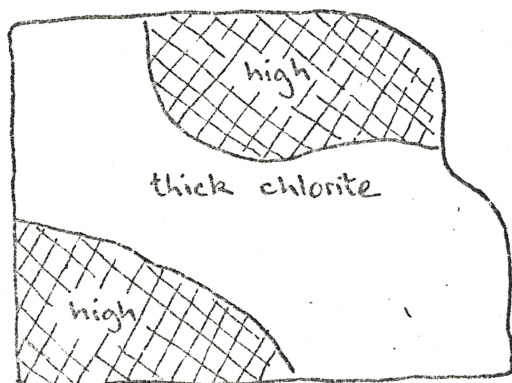 high
thick chlorite
high